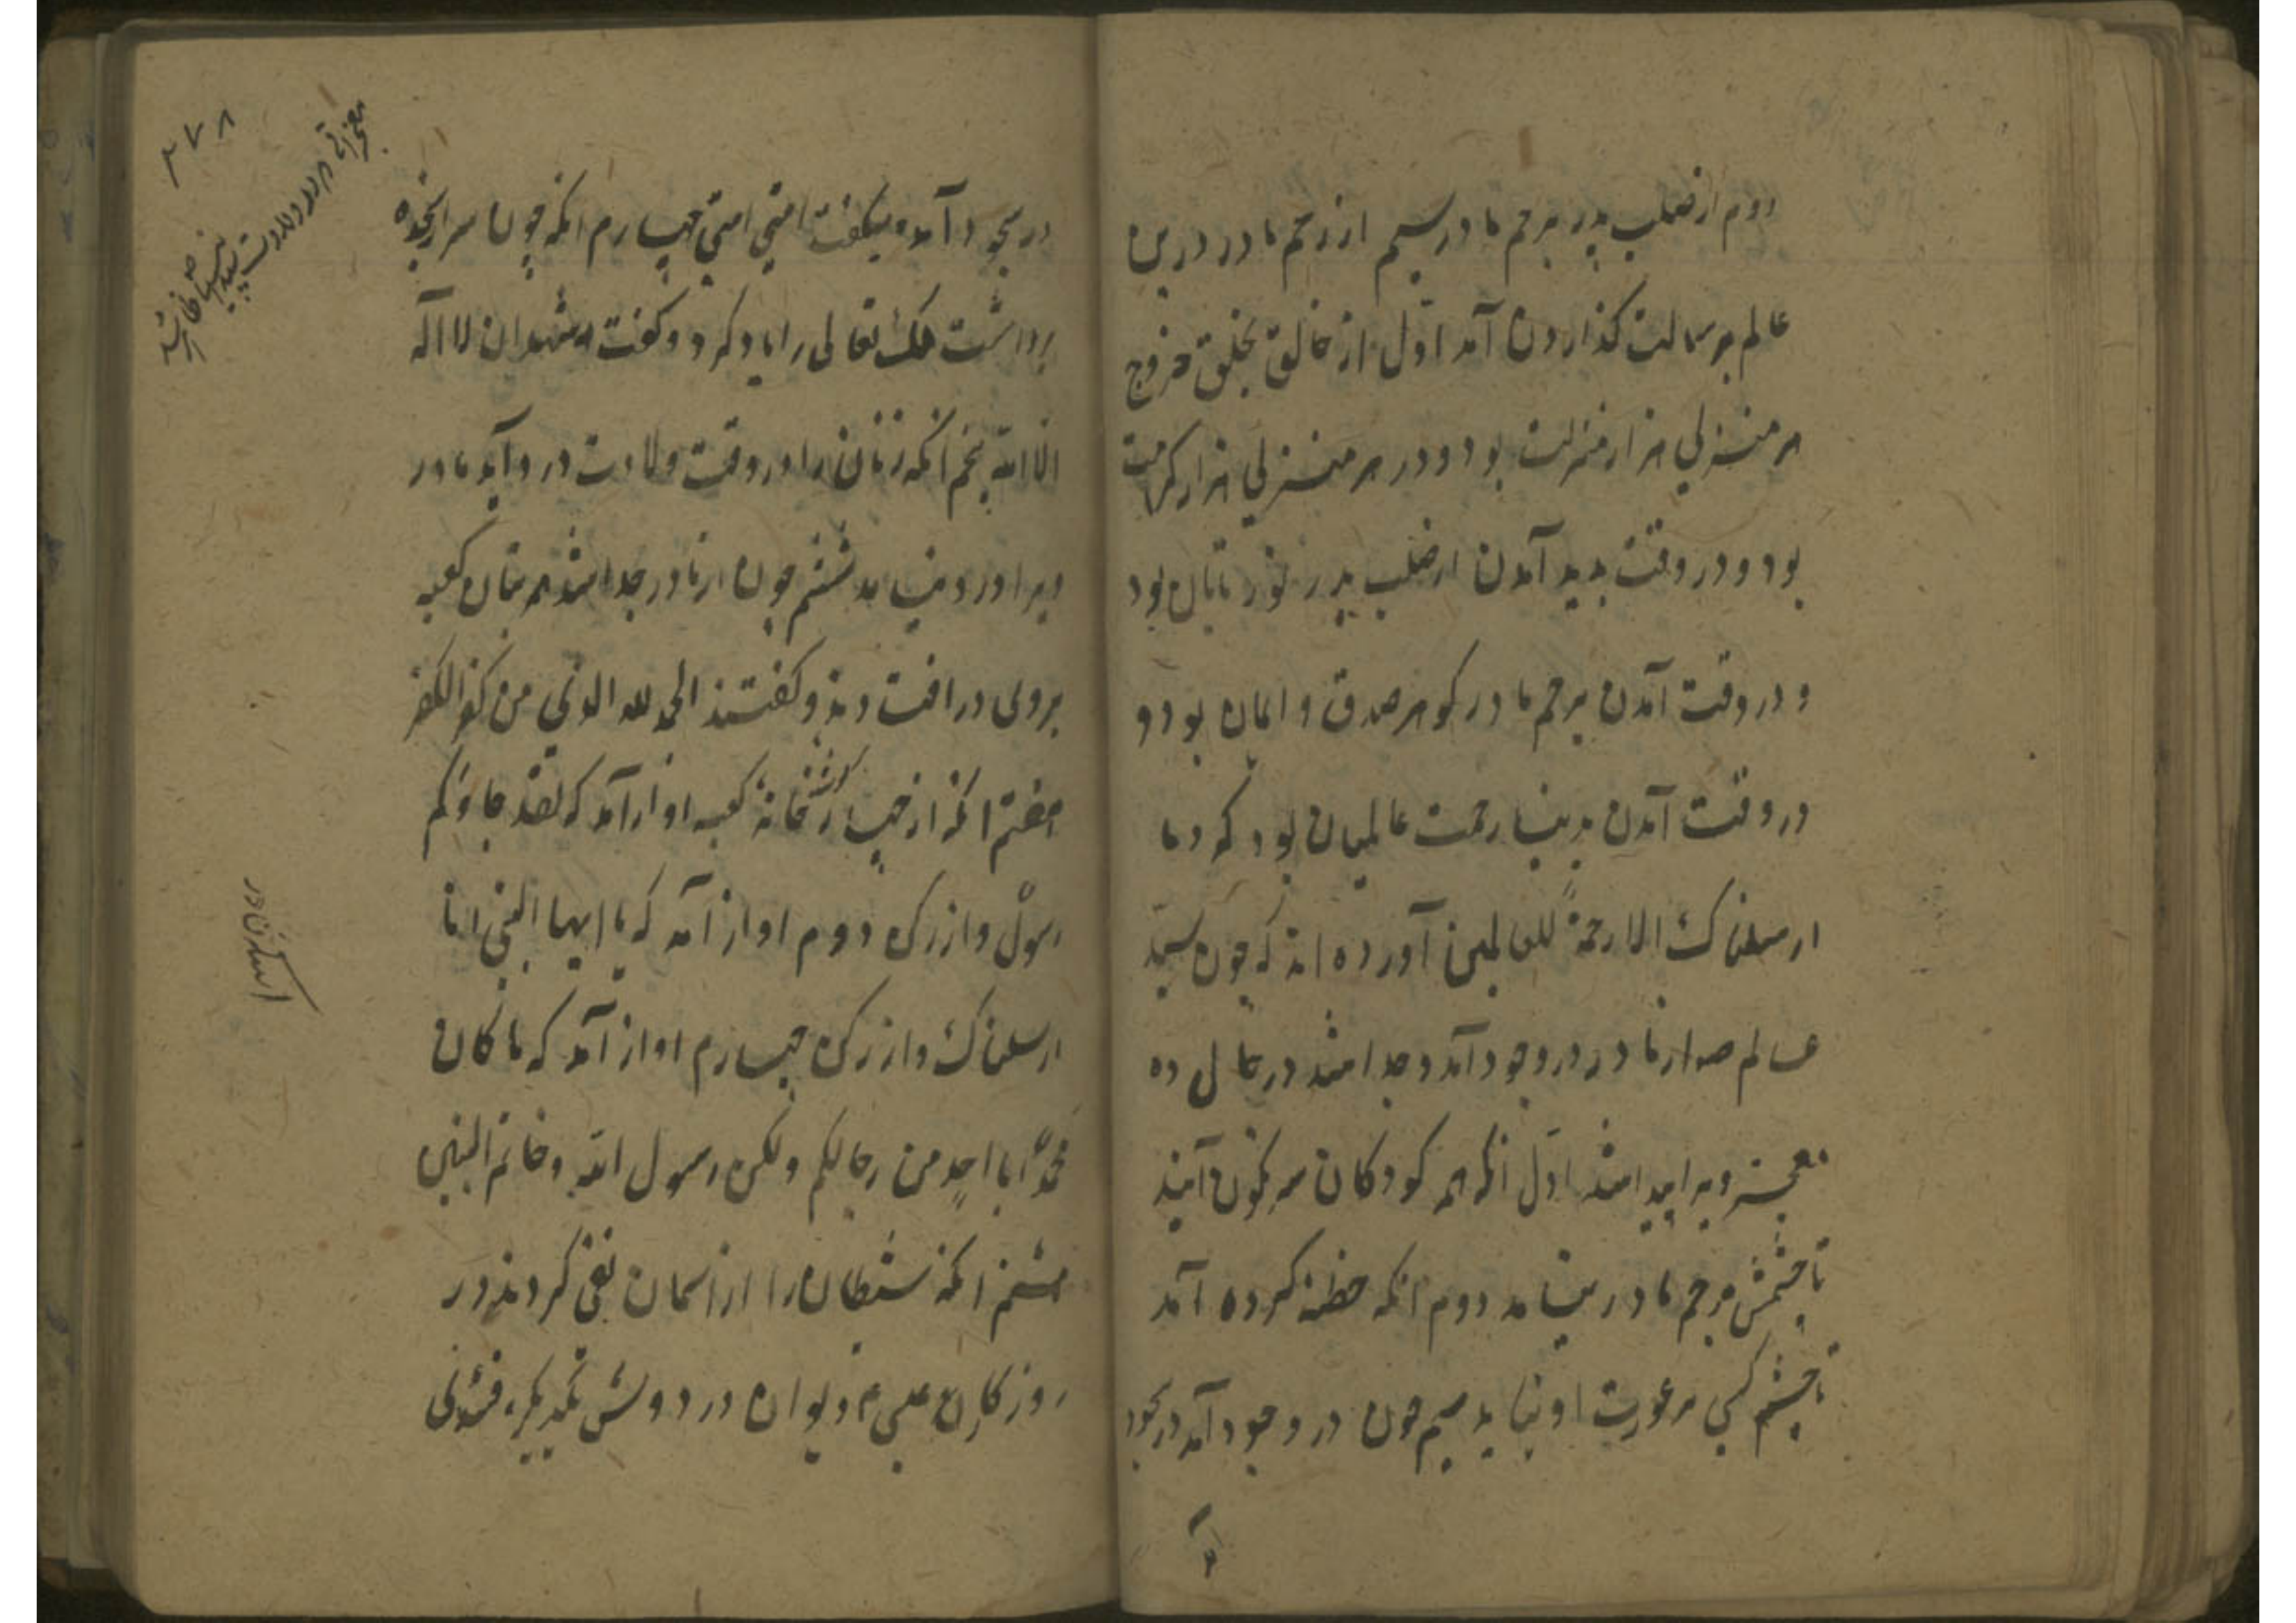 دوم از صلب پدر برحم مادر سیم از رحم مادر درین
عالم برسالت کذاردن آمد اول از خالق بخلق خروج
هر منزلی هزار منزلت بود و در هر منزلی هزار کرامت
بود و در وقت پدید آمدن از صلب پدر نور تابان بود
و در وقت آمدن برحم مادر کوهر صدق و ایمان بود و
در وقت آمدن بدنیا رحمت عالمیان بود که وما
ارسلناک الا رحمة للعالمین آورده اند که چون سید
عالم از مادر در وجود آمد و جدا شد در حال ده
معجزه پیدا شد اول انکه همه کودکان سر نکون آیند
تا چشمش برحم مادر نیاید دوم انکه ختنه کرده آمد
تا چشم کسی بر عورت او نیاید سیم چون در وجود آمد در سجود
در سجود آمد و میکفت امتی امتی چهارم انکه چون سر از سجده
برداشت ملک تعالی را یاد کرد و کفت اشهد ان لا اله
الا الله پنجم آنکه زنان را در وقت ولادت درد آید مادر
ویرا درد نیامد ششم چون از مادر جدا شد همه بتان کعبه
بروی در افتادند و کفتند الحمد لله الذی من
هفتم انکه از چهار کوشه خانه کعبه اواز آمد که لقد جاءکم
رسول و از رکن دوم اواز آمد که یا ایها النبی انا
ارسلناک و از رکن چهارم اواز آمد که ما کان
محمد ابا احد من رجالکم ولکن رسول الله وخاتم النبیین
هشتم انکه شیطان را از اسمان نفی کردند در
روزکار عیسی ع دیوان در دوش یکدیکر
معجزاتی که در ولادت سید انبیا ص ظاهر شد
۳۷۸